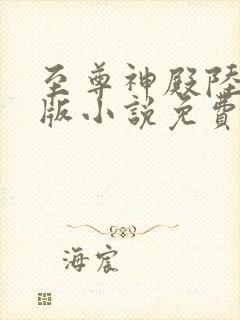 至尊神殿陸
版小説免費
海宸